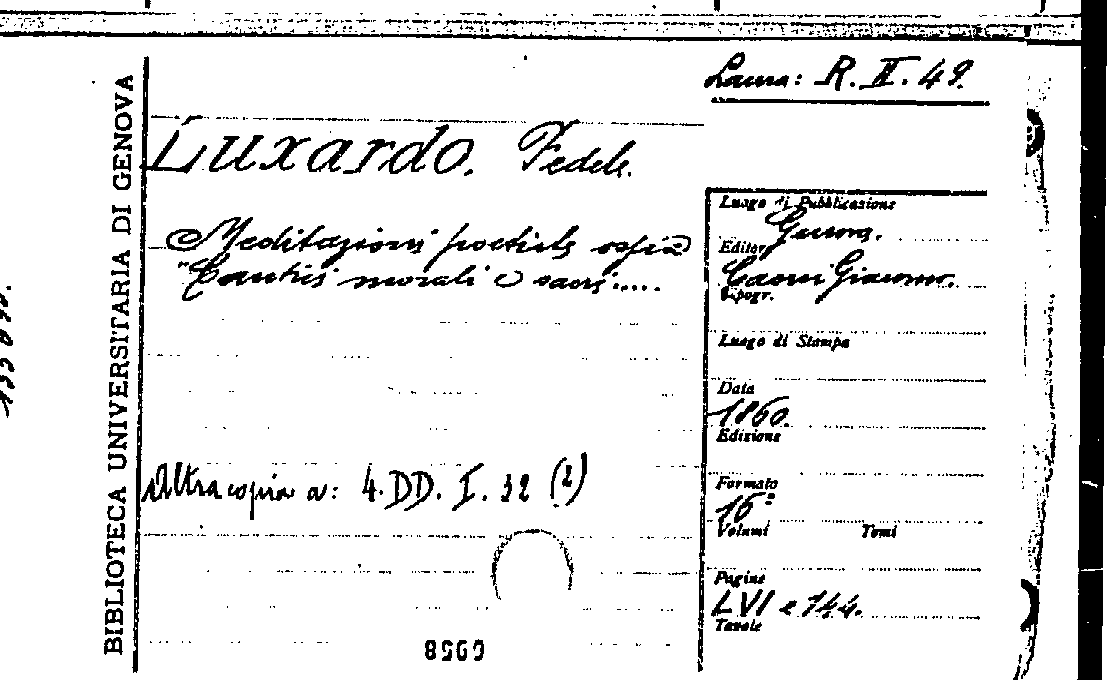 Laura: R. II. 49.
BIBLIOTECA UNIVERSITARIA DI GENOVA
Luxardo. Fedele.
Meditazioni poetiche ossia
"Cantici morali e sacri.....
Altra copia a: 4. DD. I. 32 (2)
Luogo di Pubblicazione
Genova.
Editore
Caorsi Giacomo.
Tipogr.
Luogo di Stampa
Data
1860.
Edizione
Formato
16°
Volumi Tomi
Pagine
LVI e 144.
Tavole